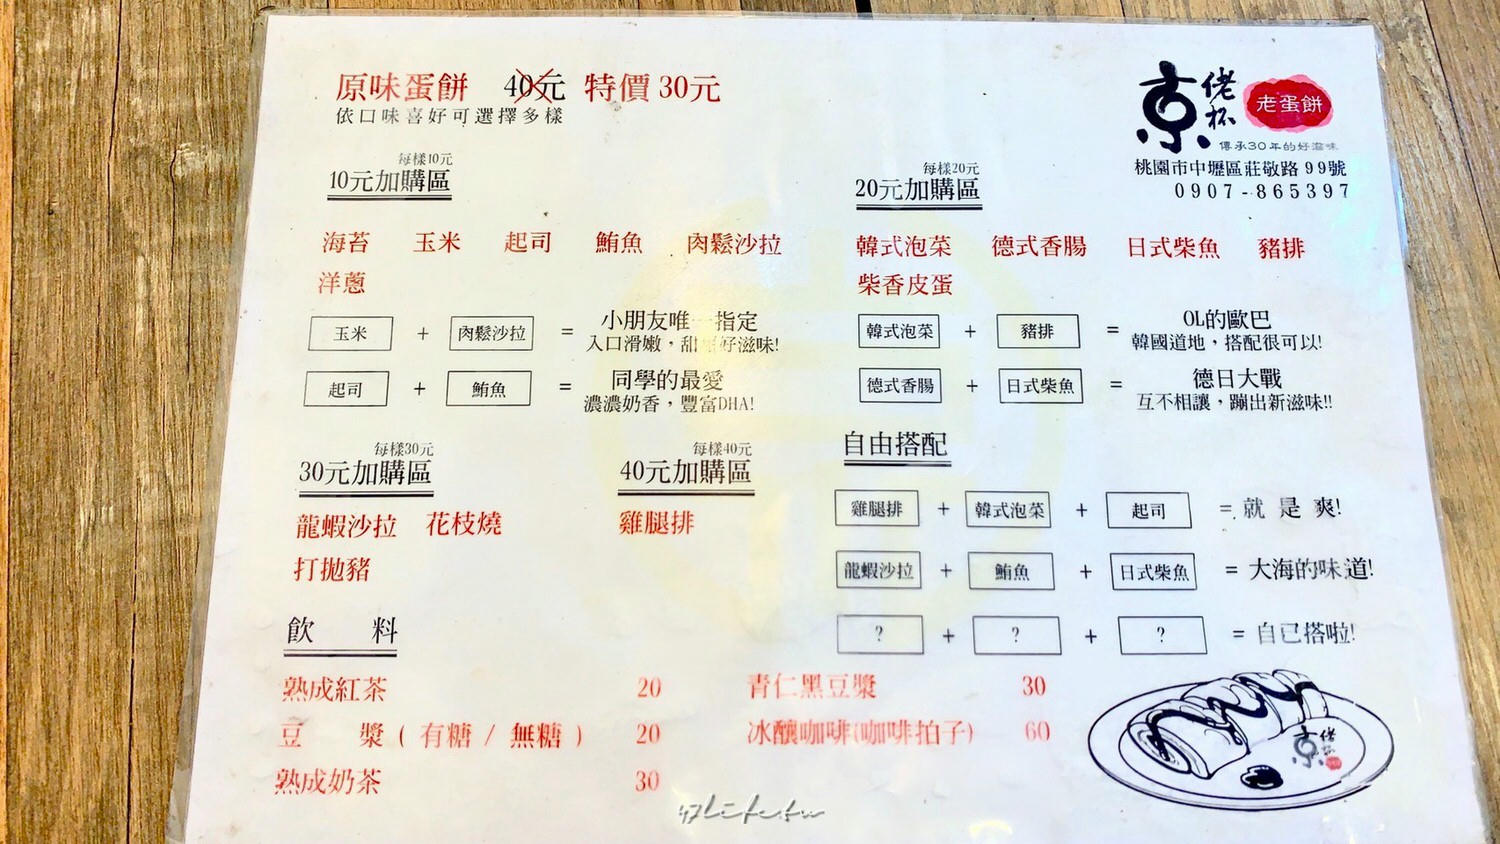 原味蛋餅 40元 特價30元
依口味喜好可選擇多樣
京佬杯 老蛋餅
傳承30年的好滋味
桃園市中壢區莊敬路99號
0907-865397
每樣10元
10元加購區
海苔 玉米 起司 鮪魚 肉鬆沙拉
洋蔥
玉米 + 肉鬆沙拉 = 小朋友唯一指定
入口滑嫩，甜 好滋味!
起司 + 鮪魚 = 同學的最愛
濃濃奶香，豐富DHA!
每樣20元
20元加購區
韓式泡菜 德式香腸 日式柴魚 豬排
柴香皮蛋
韓式泡菜 + 豬排 = OL的歐巴
韓國道地，搭配很可以!
德式香腸 + 日式柴魚 = 德日大戰
互不相讓，蹦出新滋味!!
每樣30元
30元加購區
龍蝦沙拉 花枝燒
打拋豬
每樣40元
40元加購區
雞腿排
自由搭配
雞腿排 + 韓式泡菜 + 起司 = 就是爽!
龍蝦沙拉 + 鮪魚 + 日式柴魚 = 大海的味道!
? + ? + ? = 自已搭啦!
飲 料
熟成紅茶 20
豆 漿 ( 有糖 / 無糖 ) 20
熟成奶茶 30
青仁黑豆漿 30
冰釀咖啡(咖啡拍子) 60
京佬杯
47life.tw